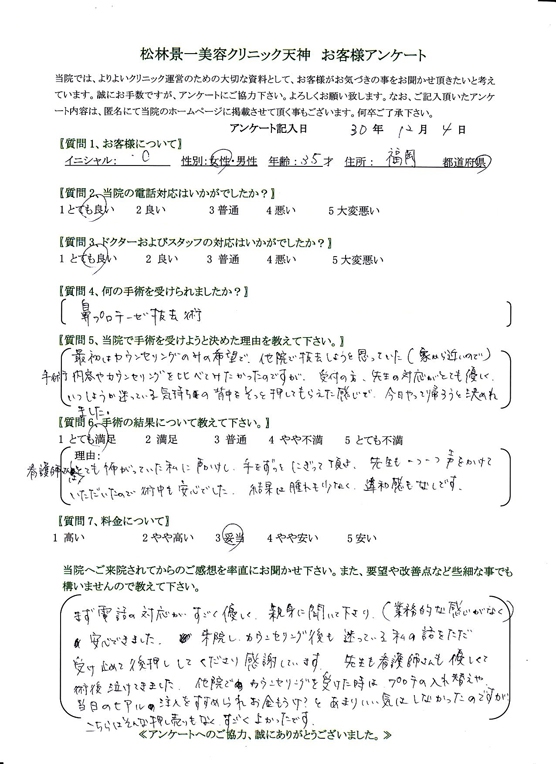 松林景一美容クリニック天神　お客様アンケート
当院では、よりよいクリニック運営のための大切な資料として、お客様がお気づきの事をお聞かせ頂きたいと考え
ています。誠にお手数ですが、アンケートにご協力下さい。よろしくお願い致します。なお、ご記入頂いたアンケ
ート内容は、匿名にて当院のホームページに掲載させて頂く事もございます。何卒ご了承下さい。
アンケート記入日　30 年 12 月 4 日
〖質問 1、お客様について〗
イニシャル： C　性別：女性・男性　年齢：35 才　住所： 福岡　都道府県
〖質問 2、当院の電話対応はいかがでしたか？〗
1 とても良い　2 良い　3 普通　4 悪い　5 大変悪い
〖質問 3、ドクターおよびスタッフの対応はいかがでしたか？〗
1 とても良い　2 良い　3 普通　4 悪い　5 大変悪い
〖質問 4、何の手術を受けられましたか？〗
鼻プロテーゼ抜去術
〖質問 5、当院で手術を受けようと決めた理由を教えて下さい。〗
最初はカウンセリングのみの希望で、他院で抜去しようと思っていた（家から近いので）
手術内容やカウンセリングを比べてみたかったのですが、受付の方、先生の対応がとても優しく、
いっしょうか迷っている気持ちの背中をそっと押してもらえた感じで、今日やって帰ろうと決めれ
ました。
〖質問 6、手術の結果について教えて下さい。〗
1 とても満足　2 満足　3 普通　4 やや不満　5 とても不満
理由：
看護師さんは とても怖がっていた私に声かけし、手をずっとにぎって頂き、先生も一つ一つ声をかけて
いただいたので術中も安心でした。結果は腫れも少なく、違和感もなしです。
〖質問 7、料金について〗
1 高い　2 やや高い　3 妥当　4 やや安い　5 安い
当院へご来院されてからのご感想を率直にお聞かせ下さい。また、要望や改善点など些細な事でも
構いませんので教えて下さい。
まず電話の対応がすごく優しく、親身に聞いて下り、（業務的な感じがなく）
安心できました。来院し、カウンセリング後も迷っている私の話をただ
受け止めて後押ししてくださり感謝しています。先生も看護師さんも優しくて
術後泣けてきました。他院でカウンセリングを受けた時は プロテの入れ替えや、
当日のヒアルの注入をすすめられお金もうけ？とあまりいい気はしなかったのですが
こちらはそんな押し売りもなく すごくよかったです。
≪アンケートへのご協力、誠にありがとうございました。≫